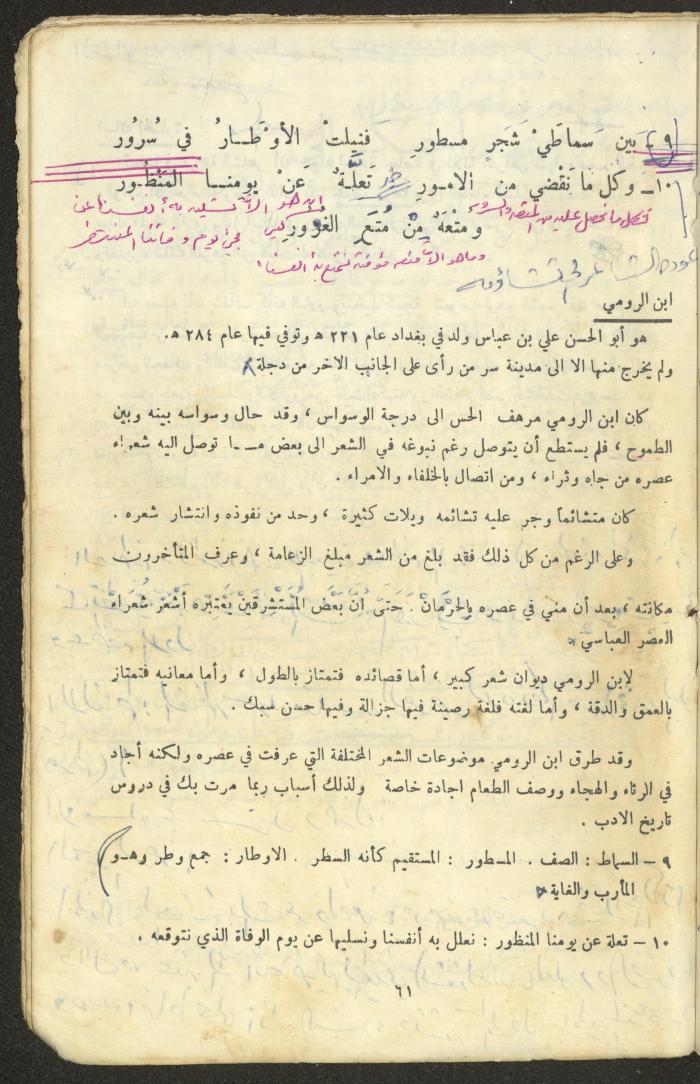 ٩ ـ بين سماطَيْ شَجرٍ مسطورِ فنيلتْ الأوْطـارُ في سُرُور
١٠ ـ وكل ما نَقْضي من الامـورِ تَعلّـةٌ عنْ يومنــا المنْظُـور
فكل ما نحصل عليه من المتعة والسرور
وَمتْعَةٌ مِنْ مُتَعَ الغُرُورِ
ابن الرومي
هو أبو الحسن علي بن عباس ولد في بغداد عام ٢٢١ ه وتوفي فيها عام ٢٨٤ ه.
ولم يخرج منها الا الى مدينة سر من رأى على الجانب الاخر من دجلة
كان ابن الرومي مرهف الحس الى درجة الوسواس ، وقد حال وسواسه بينه وبين
الطموح ، فلم يستطع أن يتوصل رغم نبوغه في الشعر الى بعض مــا توصل اليه شعراء
عصره من جاه وثراء ، ومن اتصال بالخلفاء والامراء .
كان متشائماً وجر عليه تشائمه ويلات كثيرة ، وحد من نفوذه وانتشار شعره .
وعلى الرغم من كل ذلك فقد بلغ من الشعر مبلغ الزعامة ، وعرف المتأخرون
مكانته ، بعد أن مني في عصره بالحرْمانْ . حَتَى أنّ بَعْضَ المُسْتَشرِقينَ يَعْتبَره أشْعَرَ شُعَراءْ
العصر العباسي .
لإبن الرومي ديوان شعر كبير ، أما قصائده فتمتاز بالطول ، وأما معانيه فتمتاز
بالعمق والدقة ، وأما لغته فلغة رصينة فيها جزالة وفيها حسن سبك .
وقد طرق ابن الرومي موضوعات الشعر المختلفة التي عرفت في عصره ولكنه أجاد
في الرثاء والهجاء ووصف الطعام اجادة خاصة ولذلك أسباب ربما مرت بك في دروس
تاريخ الادب .
٩ – السماط : الصف . المسطور : المستقيم كأنه السطر . الاوطار : جمع وطر وهـو
المأرب والغاية .
١٠ – تعلة عن يومنا المنظور : نعلل به أنفسنا ونسليها عن يوم الوفاة الذي نتوقعه .
٦١